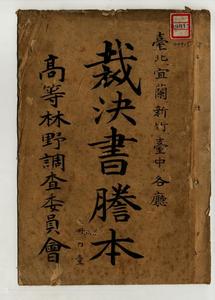 臺北宜蘭新竹臺中各廳
裁決書謄本
高等林野調査委員會